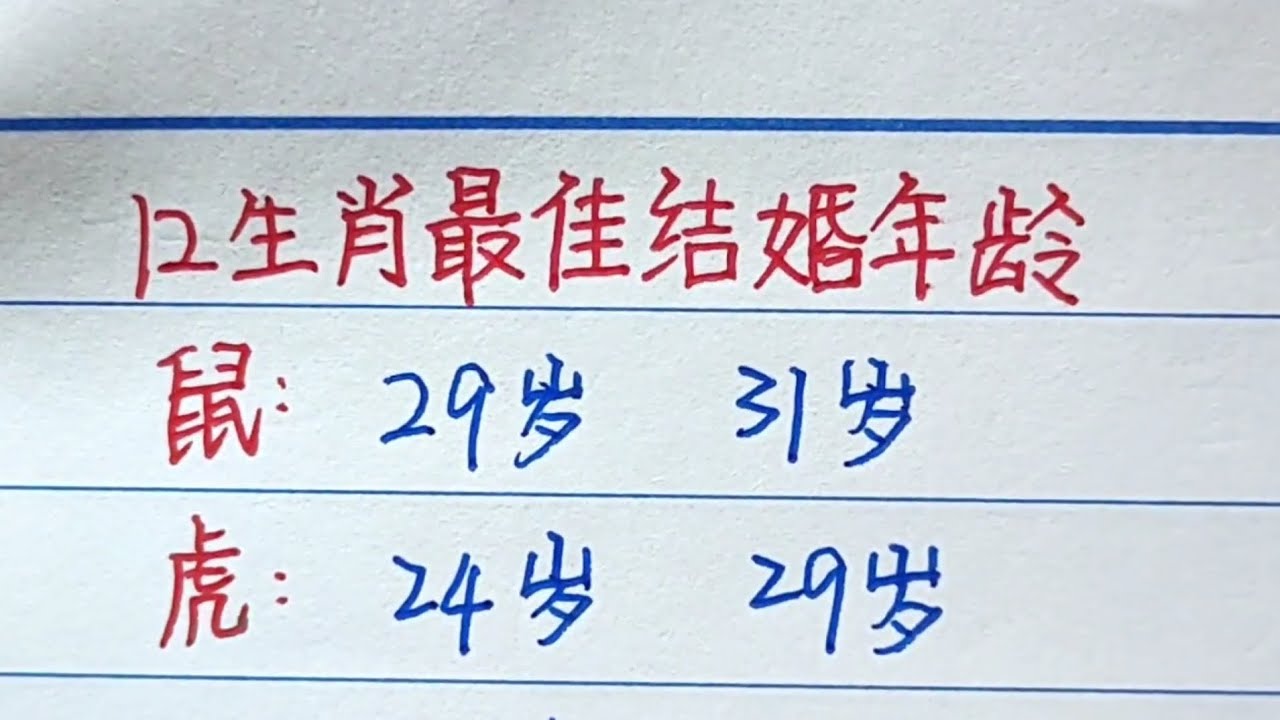 12生肖最佳结婚年龄
鼠: 29岁 31岁
虎: 24岁 29岁